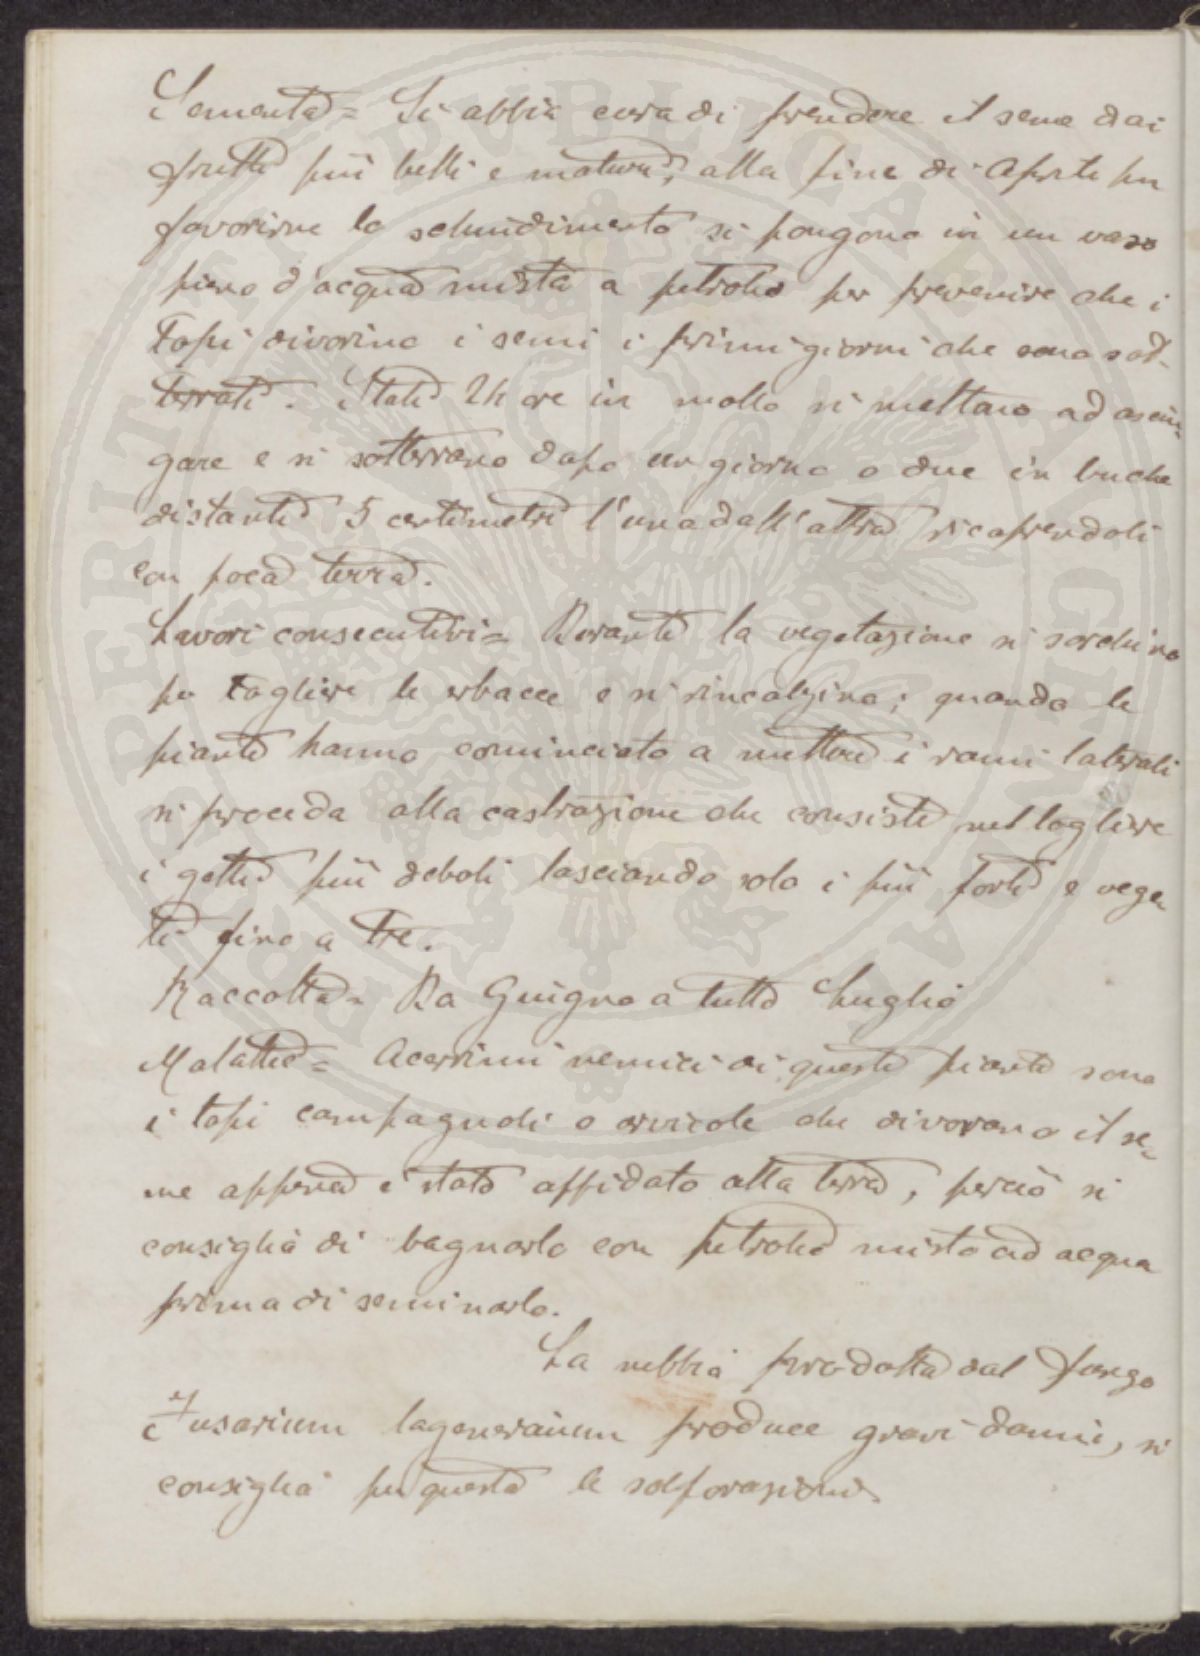 Sementa = Si abbia cura di prendere il seme dai
frutti più belli e maturi, alla fine di Aprile per
favorirne lo schiudimento si pongono in un vaso
pieno d'acqua mista a petrolio per prevenire che i
topi divorino i semi i primi giorni che sono sot-
terrati. Stati 24 ore in mollo si mettano ad asciu-
gare e si sotterrano dopo un giorno o due in buche
distanti 5 centimetri l'una dall'altra ricoprendoli
con poca terra.
Lavori consecutivi = Durante la vegetazione si sarchino
per togliere le erbacce e si rincalzino; quando le
piante hanno cominciato a mettere i rami laterali
si proceda alla castrazione che consiste nel togliere
i getti più deboli lasciando solo i più forti e vege-
ti fino a tre.
Raccolta = Da Giugno a tutto Luglio
Malattie = Acerrimi nemici di queste piante sono
i topi campagnoli o arvicole che divorano il se-
me appena è stato affidato alla terra, perciò si
consiglia di bagnarlo con petrolio misto ad acqua
prima di seminarlo.
La nebbia prodotta dal fungo
Fusarium lagenarium produce gravi danni, si
consiglia per questa le solforazioni.
PERITI PUBLICAE DILIGENTIA PROSPERITAS